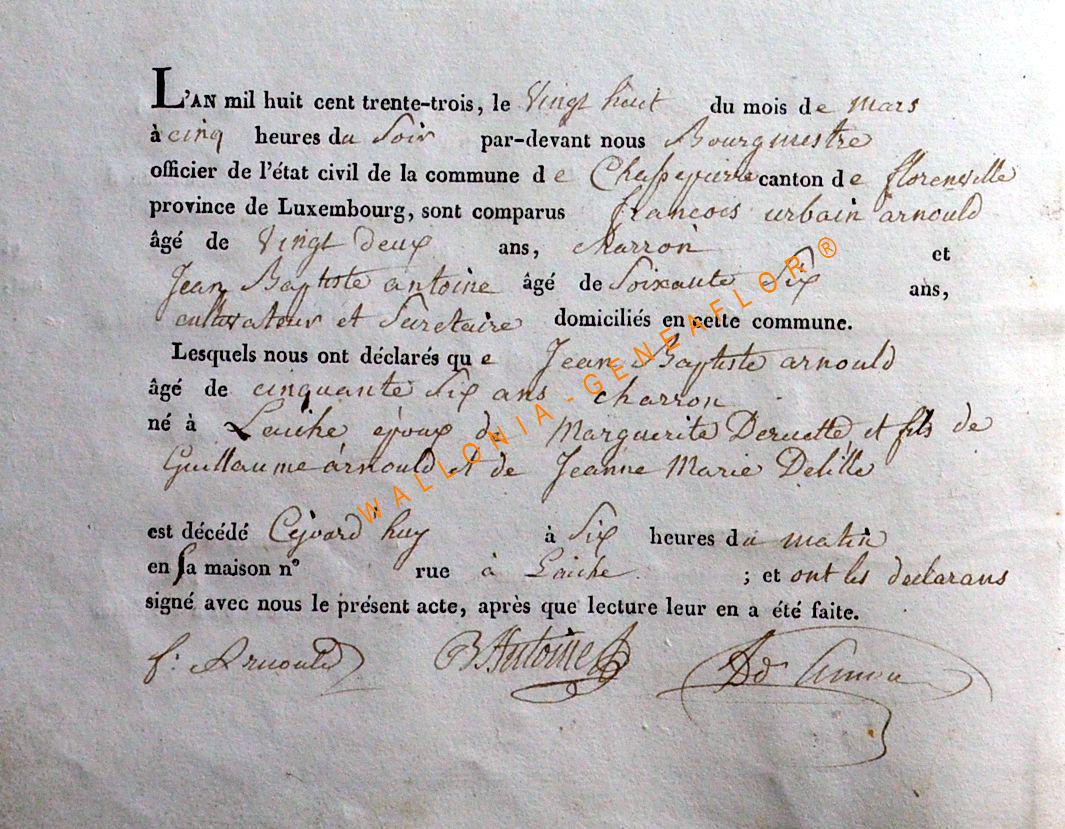 L'AN mil huit cent trente-trois, le Vingt huit du mois de mars
à cinq heures du Soir par-devant nous Bourgmestre
officier de l'état civil de la commune de Chassepierre canton de florenville
province de Luxembourg, sont comparus francois urbain arnould
âgé de Vingt deux ans, charron et
Jean Baptiste antoine âgé de Soixante Six ans,
cultivateur et Secretaire domiciliés en cette commune.
Lesquels nous ont déclarés que Jean Baptiste arnould
âgé de cinquante Six ans charron
né à Laiche époux de Marguerite Deruette et fils de
Guillaume arnould et de Jeanne Marie Delille
est décédé Cejourd'huy à Six heures du matin
en sa maison n° rue à Laiche ; et ont les declarans
signé avec nous le présent acte, après que lecture leur en a été faite.
f. Arnould B Antoine Ad
WALLONIA-GENEAFLOR®